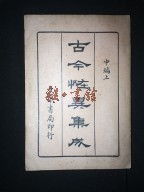 中編上
古今怪異集成
書局印行